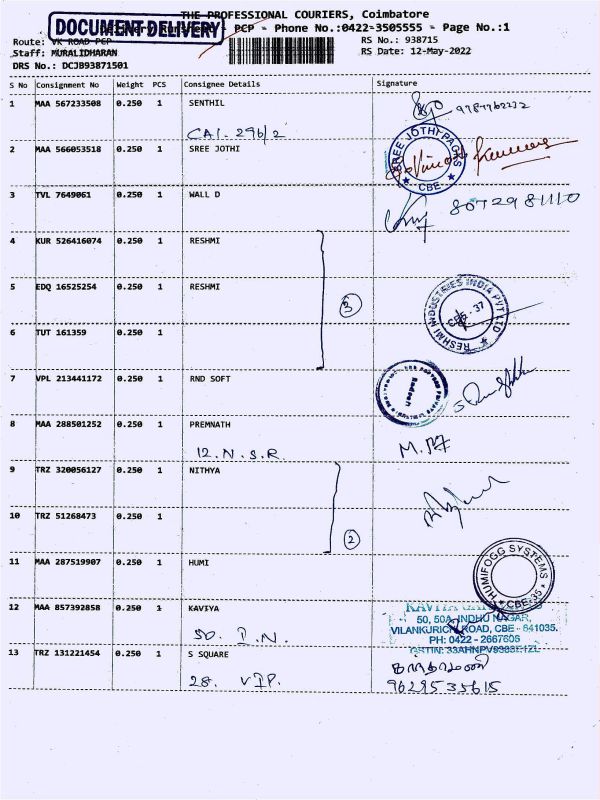 THE PROFESSIONAL COURIERS, Coimbatore
DOCUMENT DELIVERY
PCP - Phone No.:0422-3505555 - Page No.:1
Route: VK ROAD PCP
RS No.: 938715
Staff: MURALIDHARAN
RS Date: 12-May-2022
DRS No.: DCJB93871501
S No Consignment No Weight PCS Consignee Details Signature
1 MAA 567233508 0.250 1 SENTHIL
CAI. 296/2
2 MAA 566053518 0.250 1 SREE JOTHI
SREE JOTHI PACKS
★ CBE ★
Kumar
3 TVL 7649061 0.250 1 WALL D
8072981110
4 KUR 526416074 0.250 1 RESHMI
5 EDQ 16525254 0.250 1 RESHMI
3
RESHMI INDUSTRIES INDIA PVT LTD
CBE - 37
6 TUT 161359 0.250 1
7 VPL 213441172 0.250 1 RND SOFT
8 MAA 288501252 0.250 1 PREMNATH
12. N. S. R.
9 TRZ 320056127 0.250 1 NITHYA
10 TRZ 51268473 0.250 1
2
11 MAA 287519907 0.250 1 HUMI
HUMIFOGG SYSTEMS
★ CBE-35 ★
12 MAA 857392858 0.250 1 KAVIYA
50. I. N.
50, 50A, INDHU NAGAR,
VILANKURICHI ROAD, CBE - 641035.
PH: 0422 - 2667606
13 TRZ 131221454 0.250 1 S SQUARE
28. VIP.
9629535615